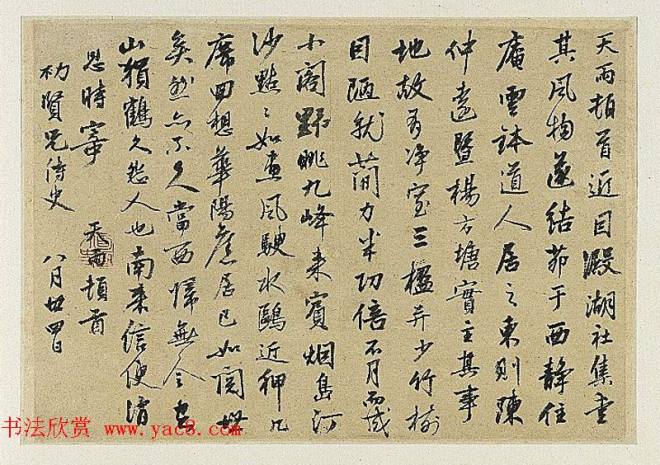 天雨頓首近因澱湖社集重
其風物遂結茆于西靜住
庵雲鉢道人居之東則陳
仲遠暨楊方塘實主其事
地故有净室三楹并少竹樹
因陋就簡力半功倍不月而成
小閣野眺九峰來賓烟島汀
沙點〻如畫風駛水鷗近狎几
席回想華陽舊居已如隔世
矣然亦不久當西歸無令
山猿鶴久怨人也南來信便
時寧 天雨頓首
賢兄侍史 八月廿四日
书法欣赏 www.yac8.com